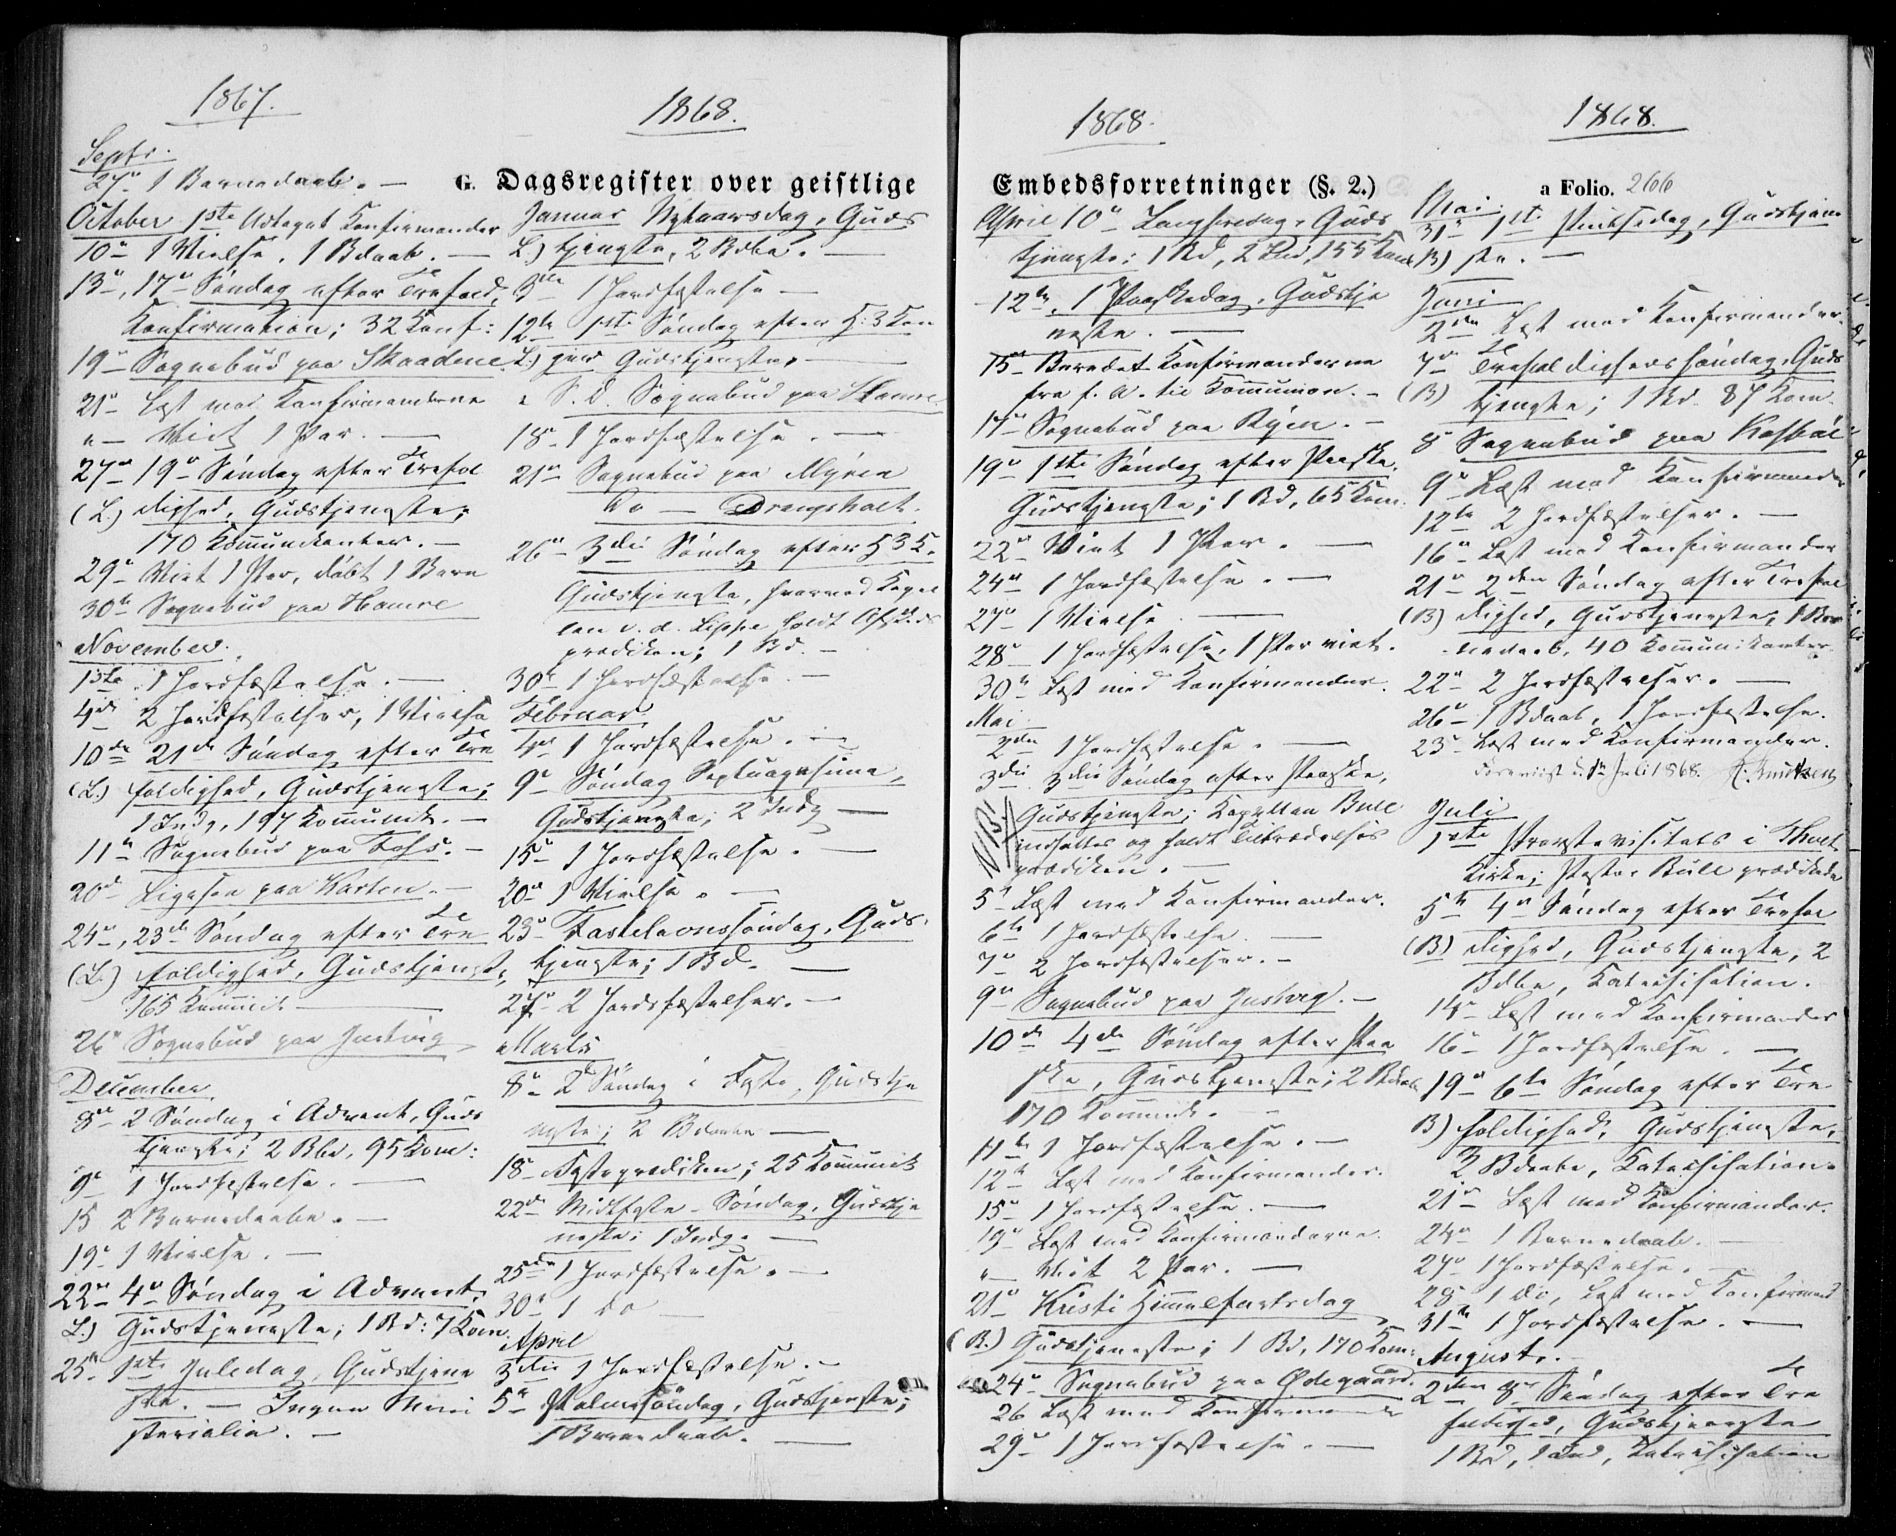 1867.
Septr.
27de 1 Barnedaab. —
October 1ste Udtaget Konfirmander
10de 1 Vielse, 1 Bdaab. —
13de, 17de Søndag efter Trefold.
Konfirmation; 32 Konf:
19de Sognebud paa Skaadene
21de Læst med Konfirmanderne
" — Viet 1 Par. —
27de 19de Søndag efter Trefol
(L.) dighed, Gudstjeneste;
170 Kommunikanter. —
29de Viet 1 Par, døbt 1 Barn
30te Sognebud paa Hamre
November.
1ste 1 Jordfæstelse. —
4de 2 Jordfæstelser, 1 Vielse
10de 21de Søndag efter Tre
(L.) foldighed, Gudstjeneste;
1 Indg., 197 Kommunik. —
11te Sognebud paa Foss. —
20de Ligesaa paa Karten. —
24de, 23de Søndag efter Tre
(L.) foldighed, Gudstjenest,
165 Kommunik. —
26de Sognebud paa Justvig
December.
8de 2 Søndag i Advent, Guds
tjeneste; 2 Bbe, 95 Kom:
9de 1 Jordfæstelse. —
15 2 Barnedaabe. —
19de 1 Vielse. —
22de 4de Søndag i Advent.
L.) Gudstjeneste; 1 Bd: 7 Kom.
25de 1ste Juledag, Gudstjene
ste. — Ingen Mini
sterialia. —
1868.
G. Dagsregister over geistlige
Januar Nytaarsdag, Guds
L.) tjeneste, 2 Bdbe. —
3die 1 Jordfæstelse —
12te 1ste Søndag efter H: 3 Kon
L.) gers Gudstjeneste. —
" S. D. Sognebud paa Hamre
18de 1 Jordfæstelse. —
21de Sognebud paa Myren
do — Drangsholt.
26de 3die Søndag efter H 3 K.
Gudstjeneste, hvorved Kapel
lan v. d. Lippe holdt Afskeds
prædiken; 1 Bd. —
30te 1 Jordfæstelse. —
Februar.
4de 1 Jordfæstelse. —
9de Søndag Septuagesima,
Gudstjeneste; 2 Indg —
15de 1 Jordfæstelse. —
20de 1 Vielse. —
23de Fastelavnssøndag, Guds
tjeneste; 1 Bd. —
27de 2 Jordfæstelser. —
Marts
8de 2d Søndag i Faste, Gudstje
neste; 2 Bdaabe —
18de Fasteprædiken; 25 Kommunik
22de Midtfaste-Søndag, Gudstje
neste; 1 Indg. —
25de 1 Jordfæstelse. —
30te 1 do —
April
3die 1 Jordfæstelse. —
5te Palmesøndag, Gudstjeneste;
1 Barnedaab. —
1868.
Embedsforretninger (§. 2.)
April 10de Langfredag, Guds
tjeneste; 1 Bd, 2 Ind, 155 Kom
12te, 1 Paaskedag, Gudstje
neste. —
15de Beredet Konfirmanderne
fra f. A. til Kommunion. —
17de Sognebud paa Ryen. —
19de 1ste Søndag efter Paaske.
Gudstjeneste; 1 Bd, 65 Kom.
22de Viet 1 Par. —
24de 1 Jordfæstelse. —
27de 1 Vielse. —
28de 1 Jordfæstelse, 1 Par viet.
30te Læst med Konfirmander.
Mai.
2den 1 Jordfæstelse. —
3die 3die Søndag efter Paaske,
NB. Gudstjeneste; Kapellan Bull
indsattes og holdt Tiltrædelses
prædiken. —
5te Læst med Konfirmander.
6te 1 Jordfæstelse. —
7de 2 Jordfæstelser. —
9de Sognebud paa Justvig. —
10de 4de Søndag efter Paa
ske, Gudstjeneste; 2 Bdaab
170 Kommunik. —
11te 1 Jordfæstelse. —
12te Læst med Konfirmander.
15de 1 Jordfæstelse. —
19de Læst med Konfirmanderne.
" — Viet 2 Par. —
21de Kristi Himmelfartsdag
(B.) Gudstjeneste; 1 Bd, 170 Kom:
24de Sognebud paa Ødegaard.
26 Læst med Konfirmander
29de 1 Jordfæstelse. —
1868.
a Folio. 266
Mai.
31te 1ste Pintsedag, Gudstjene
(B) ste. —
Juni
2den Læst med Konfirmander.
7de Trefoldighedssøndag, Guds
(B) tjeneste; 1 Bd. 87 Kom.
8 Sognebud paa
9de Læst med Konfirmander
12te 2 Jordfæstelser. —
16de Læst med Konfirmander
21de 2den Søndag efter Trefol
(B) dighed, Gudstjeneste, 1 Bar
nedaab, 40 Kommunikanter.
22de 2 Jordfæstelser. —
26de 1 Bdaab, 1 Jordfæstelse.
23de Læst med Konfirmander.
Forevist d. 1ste Juli 1868.
Juli
1ste Provstevisitats i Tveit
Kirke; Pastor Bull prædikede
5te 4de Søndag efter Trefol
(B) dighed, Gudstjeneste, 2
Bdbe, Katechisation.
14de Læst med Konfirmander
16de 1 Jordfæstelse. —
19de 6te Søndag efter Tre
B) foldighed, Gudstjeneste,
2 Bdaabe, Katechisation.
21de Læst med Konfirmander.
24de 1 Barnedaab. —
27de 1 Jordfæstelse. —
28 1 do, Læst med Konfirmand
31te 1 Jordfæstelse. —
August. —
2den 8de Søndag efter Tre
foldighed, Gudstjeneste
1 Bd, 1 Ind, Katechisation